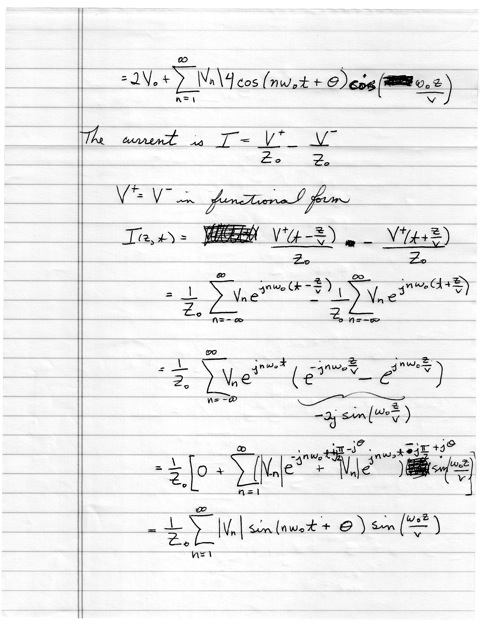 = 2V₀ + ∑_{n=1}^{∞} |Vₙ| 4 cos(nω₀t + θ) cos(ω₀z/v)
The current is I = V⁺/Z₀ - V⁻/Z₀
V⁺ = V⁻ in functional form
I(z,t) = V⁺(t - z/v)/Z₀ - V⁺(t + z/v)/Z₀
= 1/Z₀ ∑_{n=-∞}^{∞} Vₙ e^{jnω₀(t - z/v)} - 1/Z₀ ∑_{n=-∞}^{∞} Vₙ e^{jnω₀(t + z/v)}
= 1/Z₀ ∑_{n=-∞}^{∞} Vₙ e^{jnω₀t} (e^{-jnω₀ z/v} - e^{jnω₀ z/v})
-2j sin(ω₀ z/v)
= 1/Z₀ [0 + ∑_{n=1}^{∞} (|Vₙ| e^{-jnω₀t + jπ/2 - jθ} + |Vₙ| e^{jnω₀t - jπ/2 + jθ}) sin(ω₀z/v)]
= 1/Z₀ ∑_{n=1}^{∞} |Vₙ| sin(nω₀t + θ) sin(ω₀z/v)